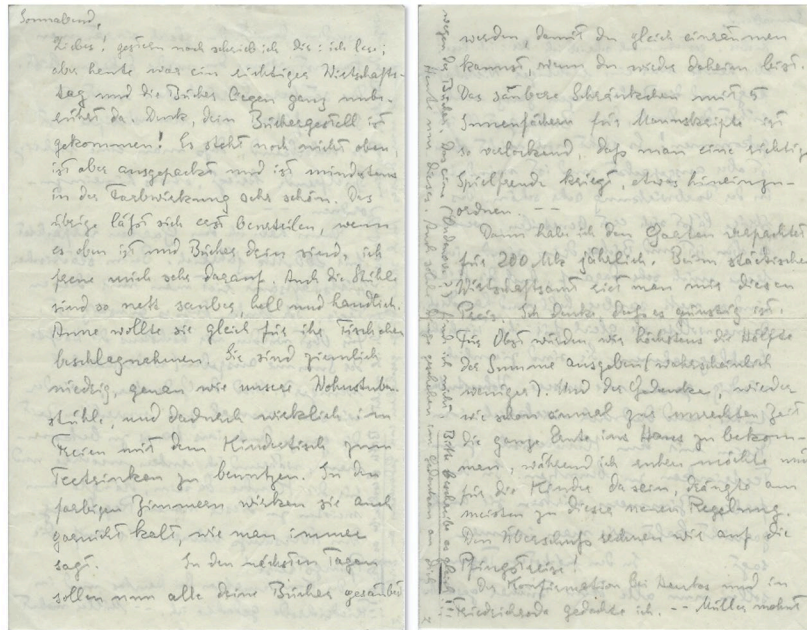 Sonnabend,
Lieber! gestern noch schrieb ich Dir: ich lese;
aber heute war ein richtiger Wirtschafts-
tag und die Bücher liegen ganz unbe-
rührt da. Denk, dein Büchergestell ist
gekommen! Es steht noch nicht oben,
ist aber ausgepackt und ist mindestens
in der Farbwirkung sehr schön. Das
übrige läßt sich erst beurteilen, wenn
es oben ist und Bücher drin sind, ich
freue mich sehr darauf. Auch die Stühle
sind so nett sauber, hell und handlich.
Anne wollte sie gleich für ihr Tischchen
beschlagnahmen. Sie sind ziemlich
niedrig, genau wie unsere Wohnstuben-
stühle, und dadurch wirklich im
Freien mit dem Kindertisch zum
Teetrinken zu benutzen. In den
farbigen Zimmern wirken sie auch
garnicht kalt, wie man immer
sagt. In den nächsten Tagen
sollen nun alle deine Bücher gesäubert
werden, damit du gleich einräumen
kannst, wenn du wieder daheim bist.
Das saubere Schränkchen mit 5
Innenfächern für Manuskripte ist
so verlockend, daß man eine richtige
Spielfreude kriegt, etwas hineinzu-
ordnen. --
Dann hab ich den Garten verpachtet
für 200 Mk jährlich. Beim städtischen
Wirtschaftsamt riet man mir diesen
Preis. Ich denke, daß es günstig ist.
Für Obst würden wir höchstens die Hälfte
der Summe ausgeben (wahrscheinlich
weniger). Und der Gedanke, wieder
wie schon einmal zur unrechten Zeit
die ganze Ernte ins Haus zu bekom-
men, während ich extra möchte nur
für die Kinder da sein, drängte am
meisten zu dieser neuen Regelung.
Den Überschuß rechnen wir auf die
Pfingstreise!
Der Konfirmation bei und in
Friedrichroda gedachte ich. -- Müller wohnt
wegen der Bücher. Das eine find ich nicht. Bitte beschreibe es gleich!!
Heute nur dieses. Auch geschehen im Gedenken an Dich.